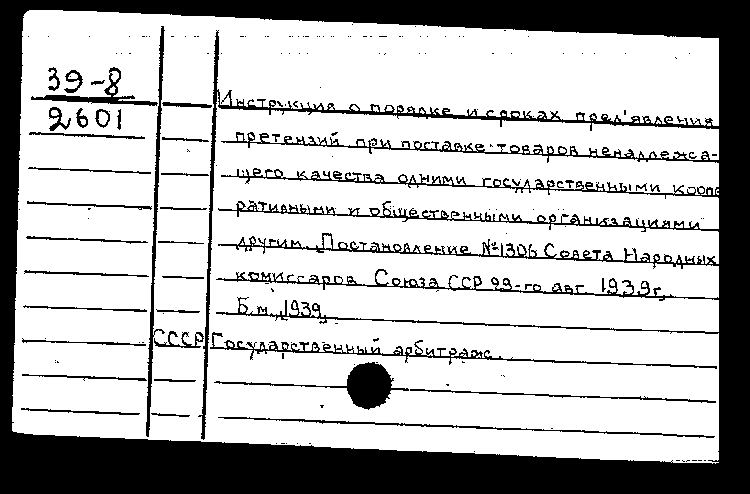 39-8
2601
Инструкция о порядке и сроках пред'явления
претензий при поставке товаров ненадлежа-
щего качества одними государственными, коопе
ративными и общественными организациями
другим. Постановление №1306 Совета Народных
комиссаров Союза ССР 29-го авг. 1939г.
Б.м., 1939,
СССР Государственный арбитраж.